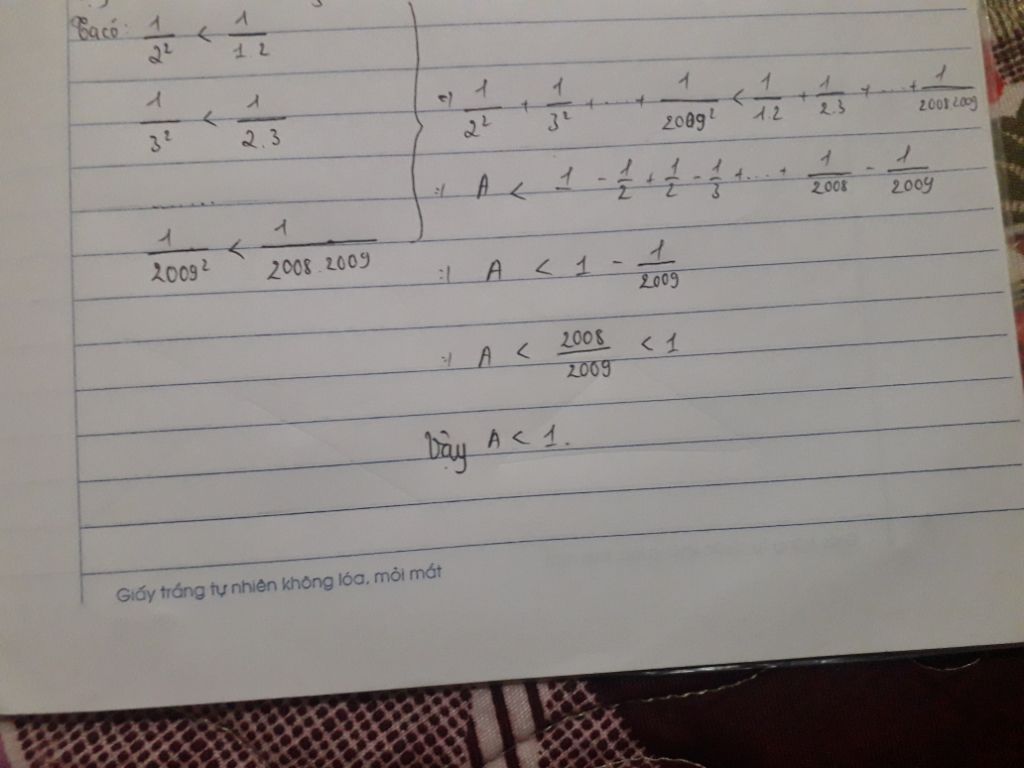 Ta có: 1/2² < 1/1.2
1/3² < 1/2.3
........
1/2009² < 1/2008.2009
=> 1/2² + 1/3² + ... + 1/2009² < 1/1.2 + 1/2.3 + ... + 1/2008.2009
=> A < 1 - 1/2 + 1/2 - 1/3 + ... + 1/2008 - 1/2009
=> A < 1 - 1/2009
=> A < 2008/2009 < 1
Vậy A < 1.
Giấy trắng tự nhiên không lóa, mỏi mắt